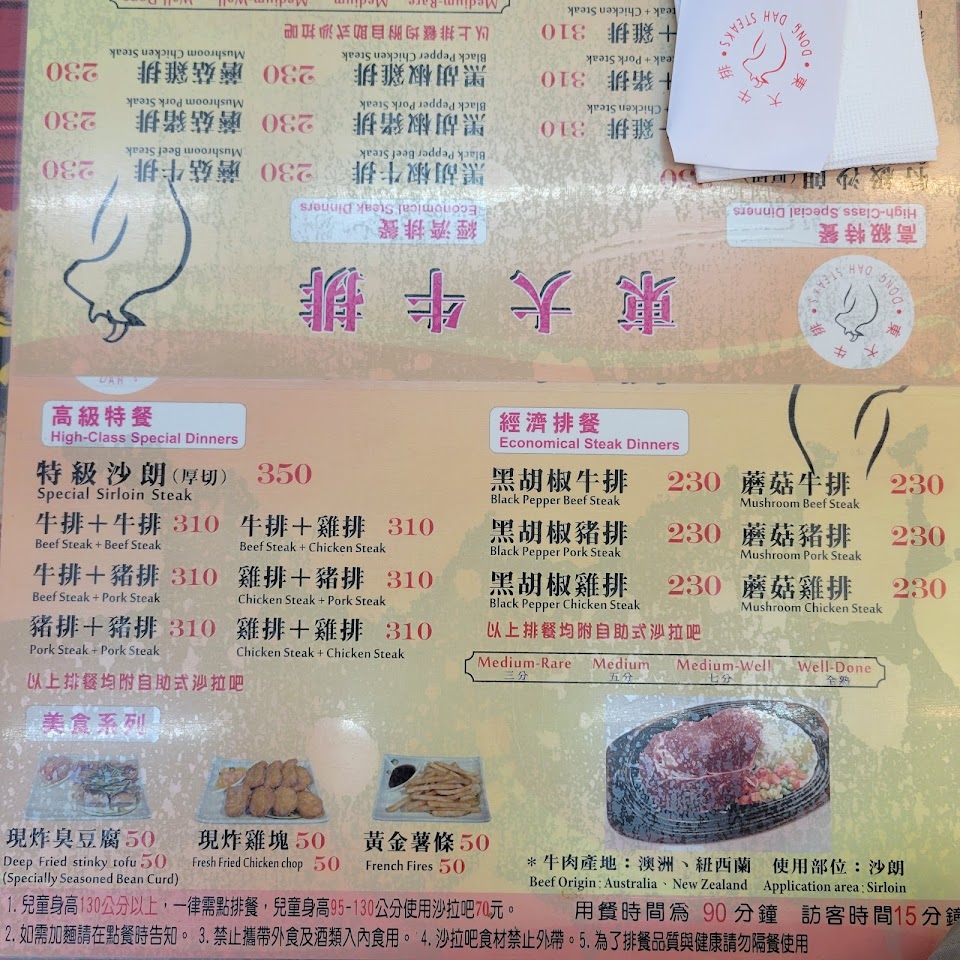 Medium-Rare Medium Medium-Well Well-Done
以上排餐均附自助式沙拉吧
黑胡椒雞排 230 蘑菇雞排 230
Black Pepper Chicken Steak Mushroom Chicken Steak
黑胡椒豬排 230 蘑菇豬排 230
Black Pepper Pork Steak Mushroom Pork Steak
黑胡椒牛排 230 蘑菇牛排 230
Black Pepper Beef Steak Mushroom Beef Steak
＋雞排 310
Steak + Chicken Steak
＋豬排 310
Steak + Pork Steak
＋雞排 310
Chicken Steak
特級沙朗(厚切)
經濟排餐
Economical Steak Dinners
高級特餐
High-Class Special Dinners
東大牛排
DONG DAH STEAKS
東大牛排
DONG DAH STEAKS
東大牛排
DAH
高級特餐
High-Class Special Dinners
特級沙朗(厚切) 350
Special Sirloin Steak
牛排＋牛排 310 牛排＋雞排 310
Beef Steak + Beef Steak Beef Steak + Chicken Steak
牛排＋豬排 310 雞排＋豬排 310
Beef Steak + Pork Steak Chicken Steak + Pork Steak
豬排＋豬排 310 雞排＋雞排 310
Pork Steak + Pork Steak Chicken Steak + Chicken Steak
以上排餐均附自助式沙拉吧
經濟排餐
Economical Steak Dinners
黑胡椒牛排 230 蘑菇牛排 230
Black Pepper Beef Steak Mushroom Beef Steak
黑胡椒豬排 230 蘑菇豬排 230
Black Pepper Pork Steak Mushroom Pork Steak
黑胡椒雞排 230 蘑菇雞排 230
Black Pepper Chicken Steak Mushroom Chicken Steak
以上排餐均附自助式沙拉吧
Medium-Rare Medium Medium-Well Well-Done
三分 五分 七分 全熟
美食系列
現炸臭豆腐 50 現炸雞塊 50 黃金薯條 50
Deep Fried stinky tofu 50 Fresh Fried Chicken chop 50 French Fires 50
(Specially Seasoned Bean Curd)
＊牛肉產地：澳洲、紐西蘭 使用部位：沙朗
Beef Origin: Australia、New Zealand Application area: Sirloin
1. 兒童身高130公分以上，一律需點排餐，兒童身高95-130公分使用沙拉吧70元。 用餐時間為 90 分鐘 訪客時間15分鐘
2. 如需加麵請在點餐時告知。 3. 禁止攜帶外食及酒類入內食用。 4. 沙拉吧食材禁止外帶。5. 為了排餐品質與健康請勿隔餐使用